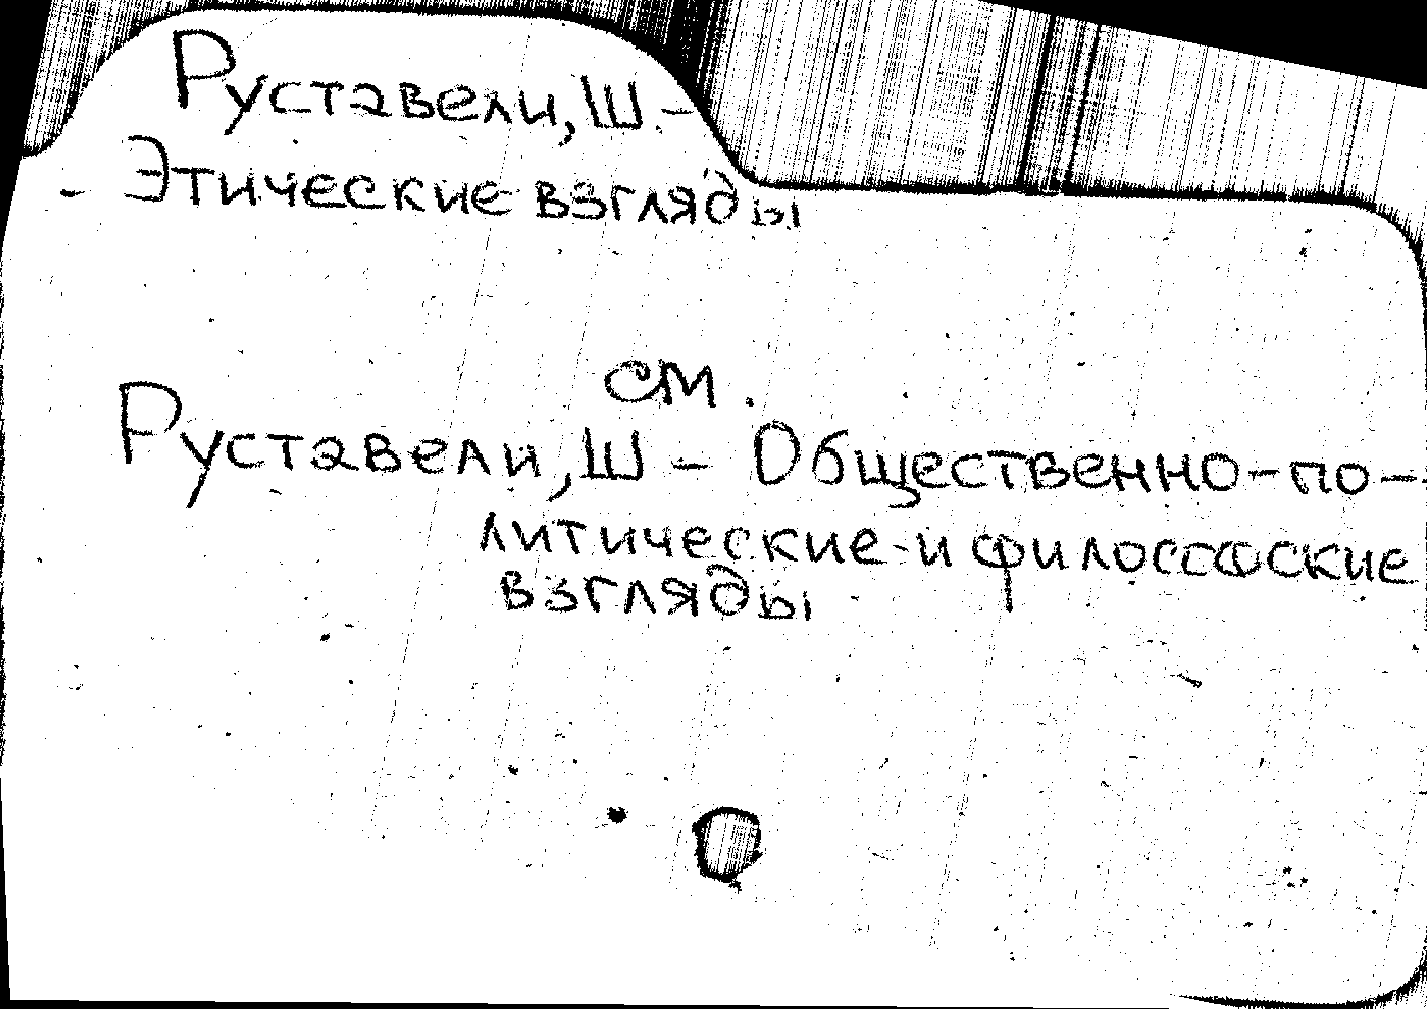 Руставели, Ш. -
- Этические взгляды
см.
Руставели, Ш - Общественно-по-
литические и философские
взгляды